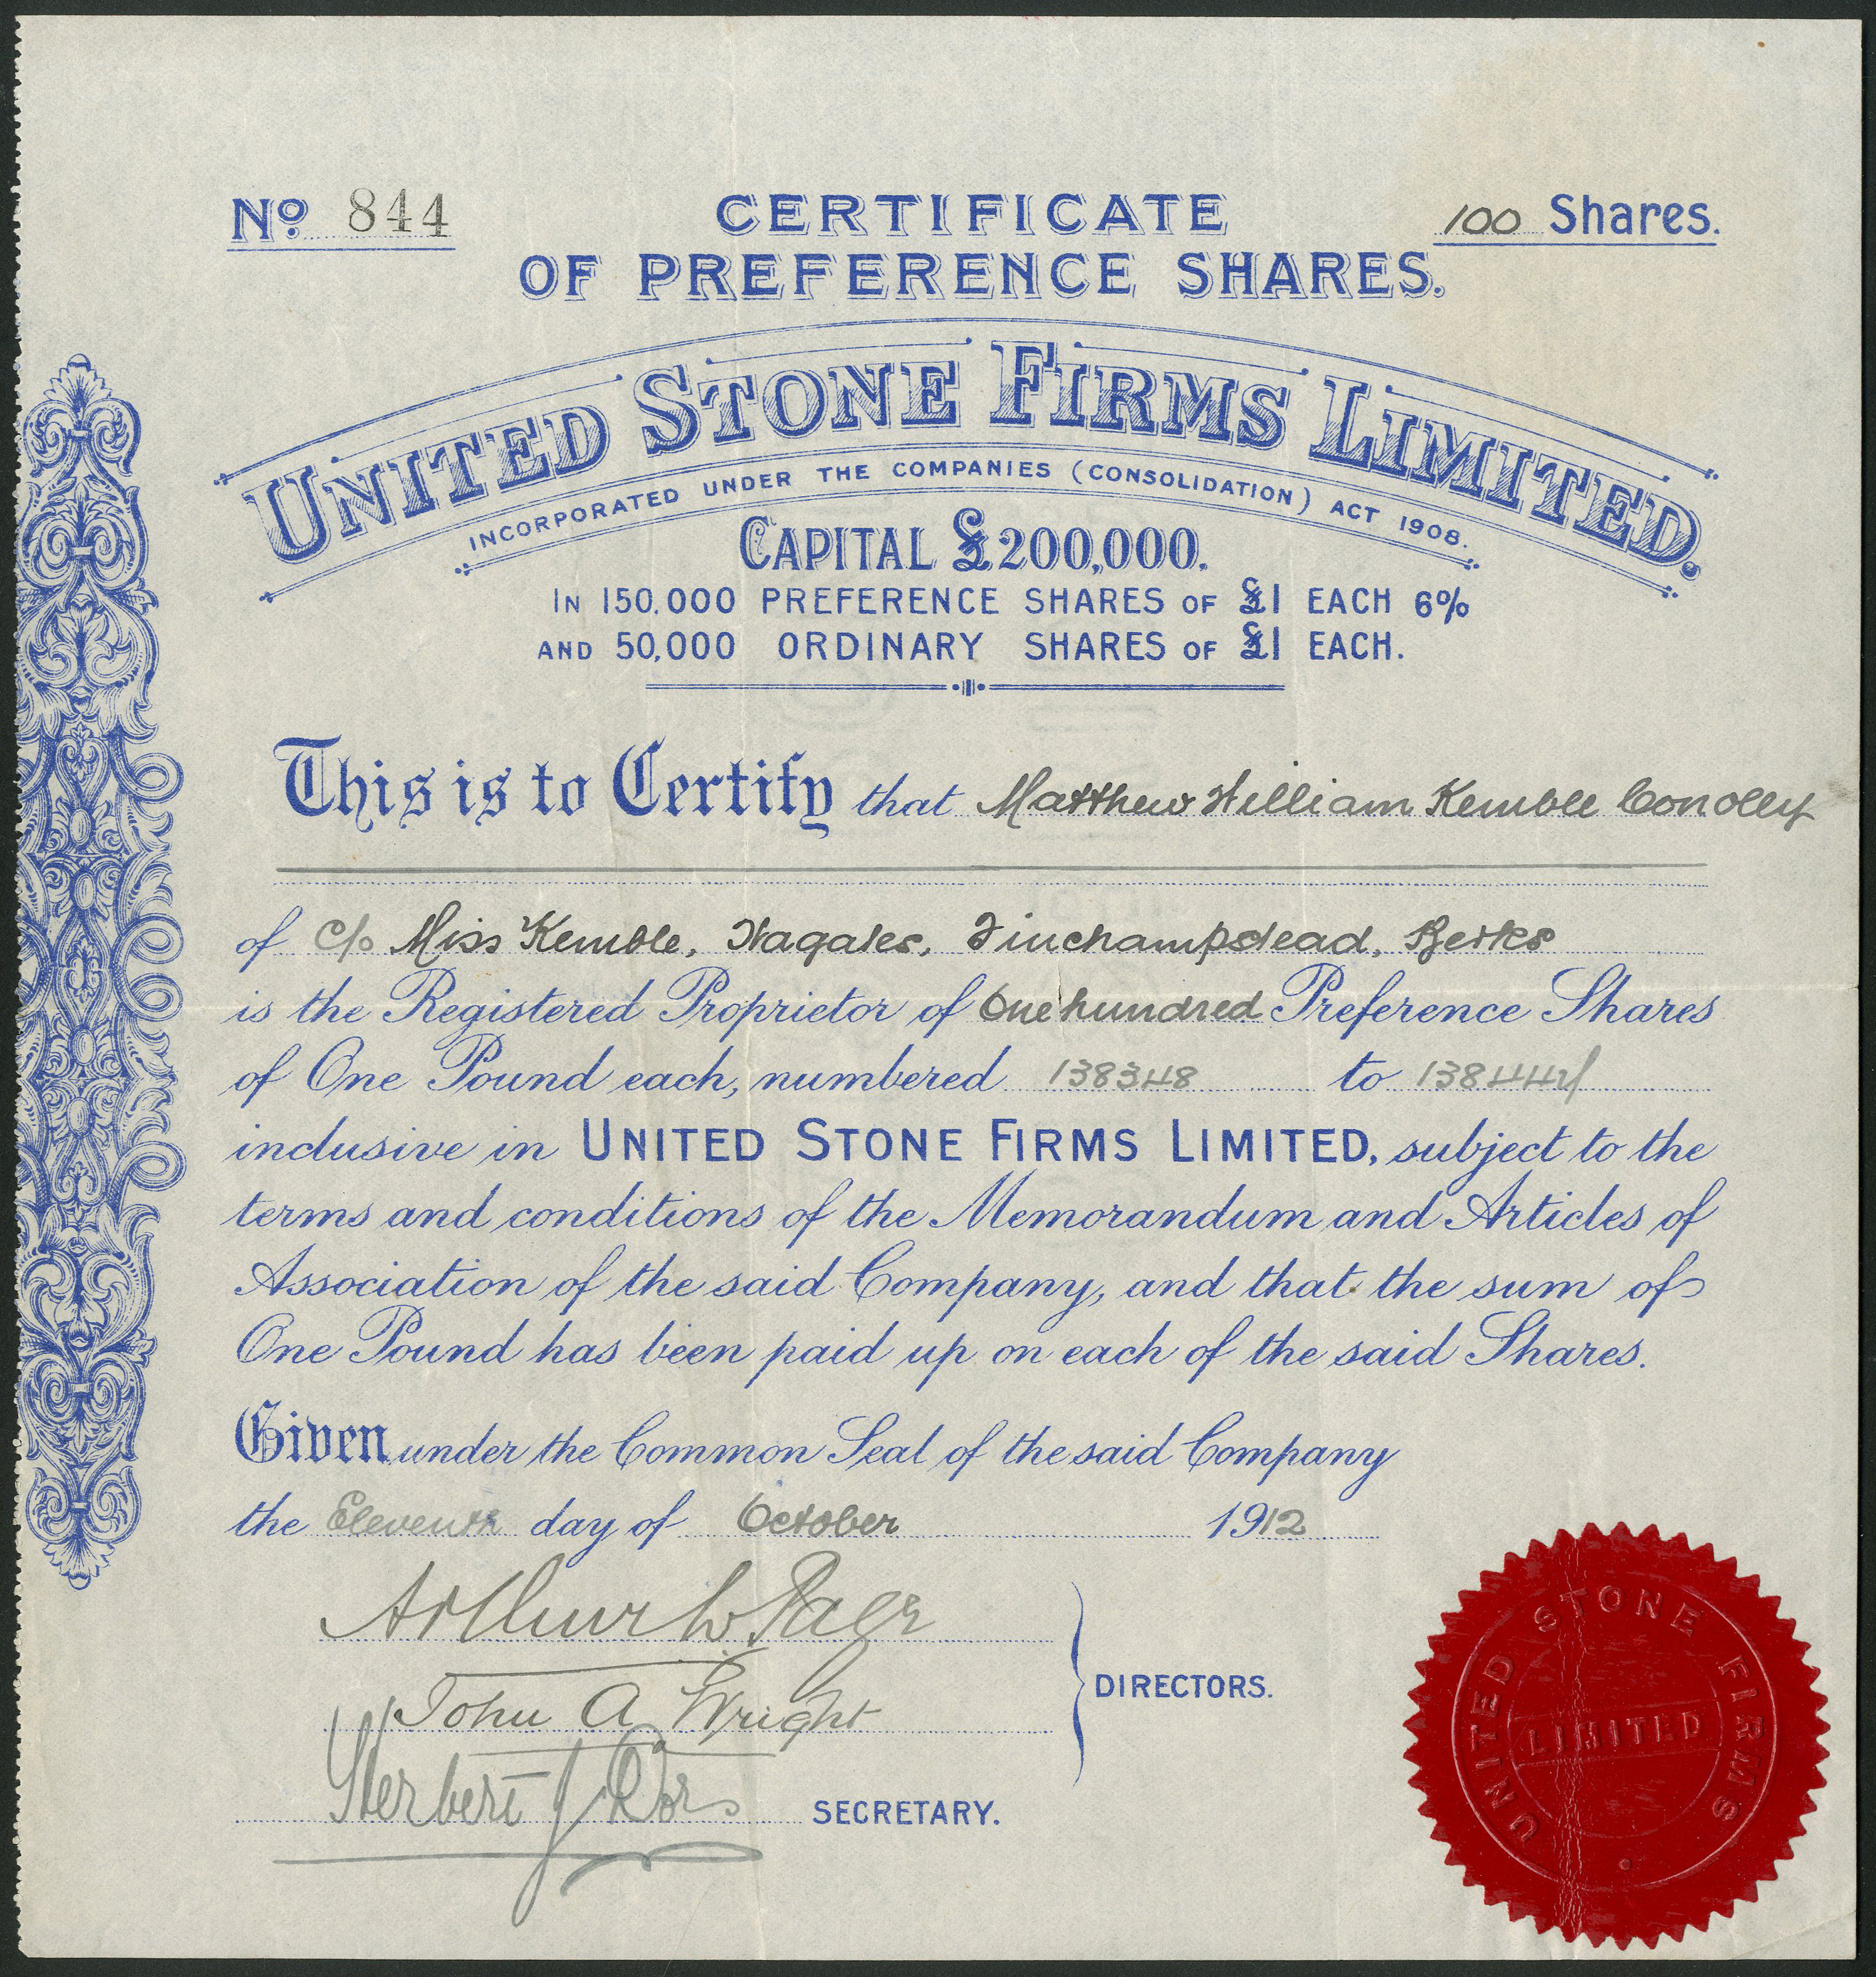 No. 844
CERTIFICATE
OF PREFERENCE SHARES.
100 Shares.
UNITED STONE FIRMS LIMITED.
INCORPORATED UNDER THE COMPANIES (CONSOLIDATION) ACT 1908.
CAPITAL £200,000.
IN 150,000 PREFERENCE SHARES OF £1 EACH 6%
AND 50,000 ORDINARY SHARES OF £1 EACH.
This is to Certify that Matthew William Kemble Conolly
of c/o Miss Kemble, Finchampstead, Berks
is the Registered Proprietor of One hundred Preference Shares
of One Pound each, numbered 138348 to 138447
inclusive in UNITED STONE FIRMS LIMITED, subject to the
terms and conditions of the Memorandum and Articles of
Association of the said Company, and that the sum of
One Pound has been paid up on each of the said Shares.
Given under the Common Seal of the said Company
the Eleventh day of October 1912
Arthur W. Page
John A Wright
DIRECTORS.
Herbert J
SECRETARY.
UNITED STONE FIRMS
LIMITED